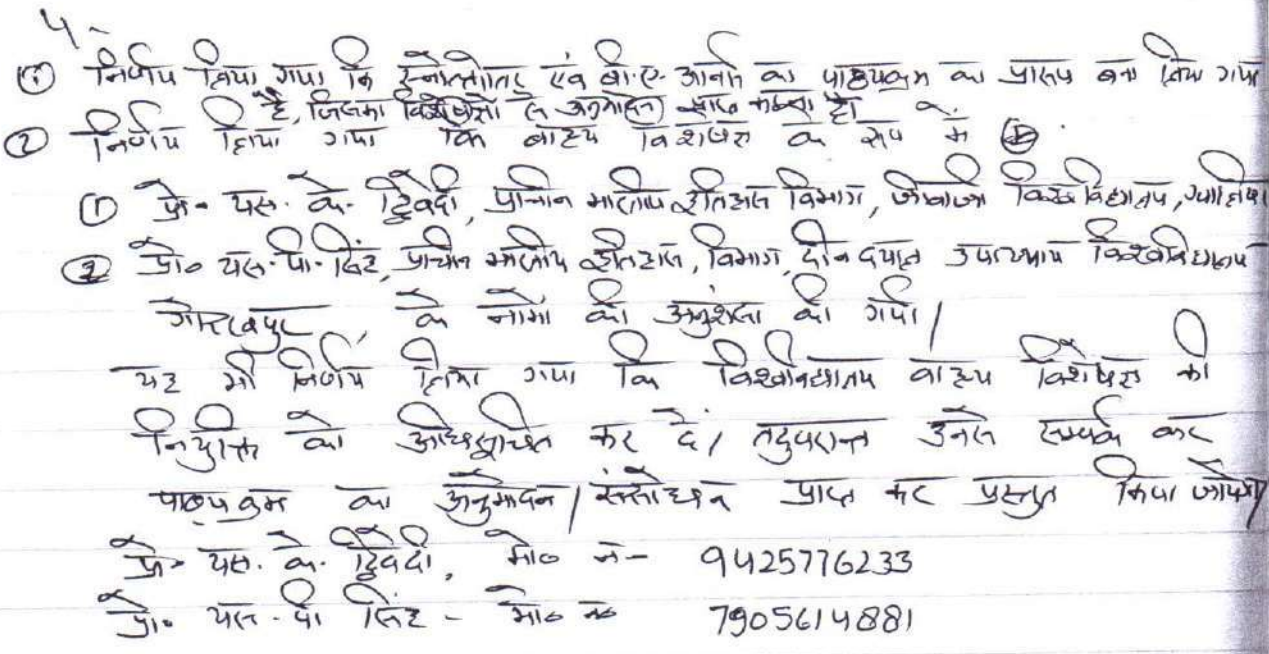 4-
① निर्णय लिया गया कि स्नातकोत्तर एवं बी.ए. आनर्स का पाठ्यक्रम का प्रारूप बना लिया गया
है, जिसका विशेषज्ञों से अनुमोदन प्राप्त करना है।
② निर्णय लिया गया कि बाह्य विशेषज्ञ के रूप में
① प्रो. यस. के. द्विवेदी, प्राचीन भारतीय इतिहास विभाग, जीवाजी विश्वविद्यालय, ग्वालियर
② प्रो० यस. पी. सिंह, प्राचीन भारतीय इतिहास, विभाग, दीन दयाल उपाध्याय विश्वविद्यालय
गोरखपुर, के नामों की अनुशंसा की गयी /
यह भी निर्णय लिया गया कि विश्वविद्यालय बाह्य विशेषज्ञ की
नियुक्ति को अधिसूचित कर दे / तदुपरान्त उनसे सम्पर्क कर
पाठ्यक्रम का अनुमोदन / संसोधन प्राप्त कर प्रस्तुत किया जायेगा /
प्रो० यस. के. द्विवेदी, मो० नं- 9425776233
प्रो० यस. पी सिंह - मो० नं० 7905614881